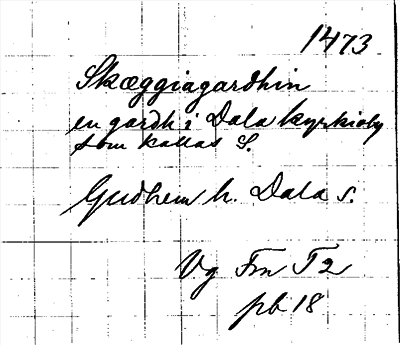 1473
Skæggiagardhin
en gardh i Dala kyrkioby
som kallas S.
Gudhem h. Dala s.
Vg Fm T2
pb 18